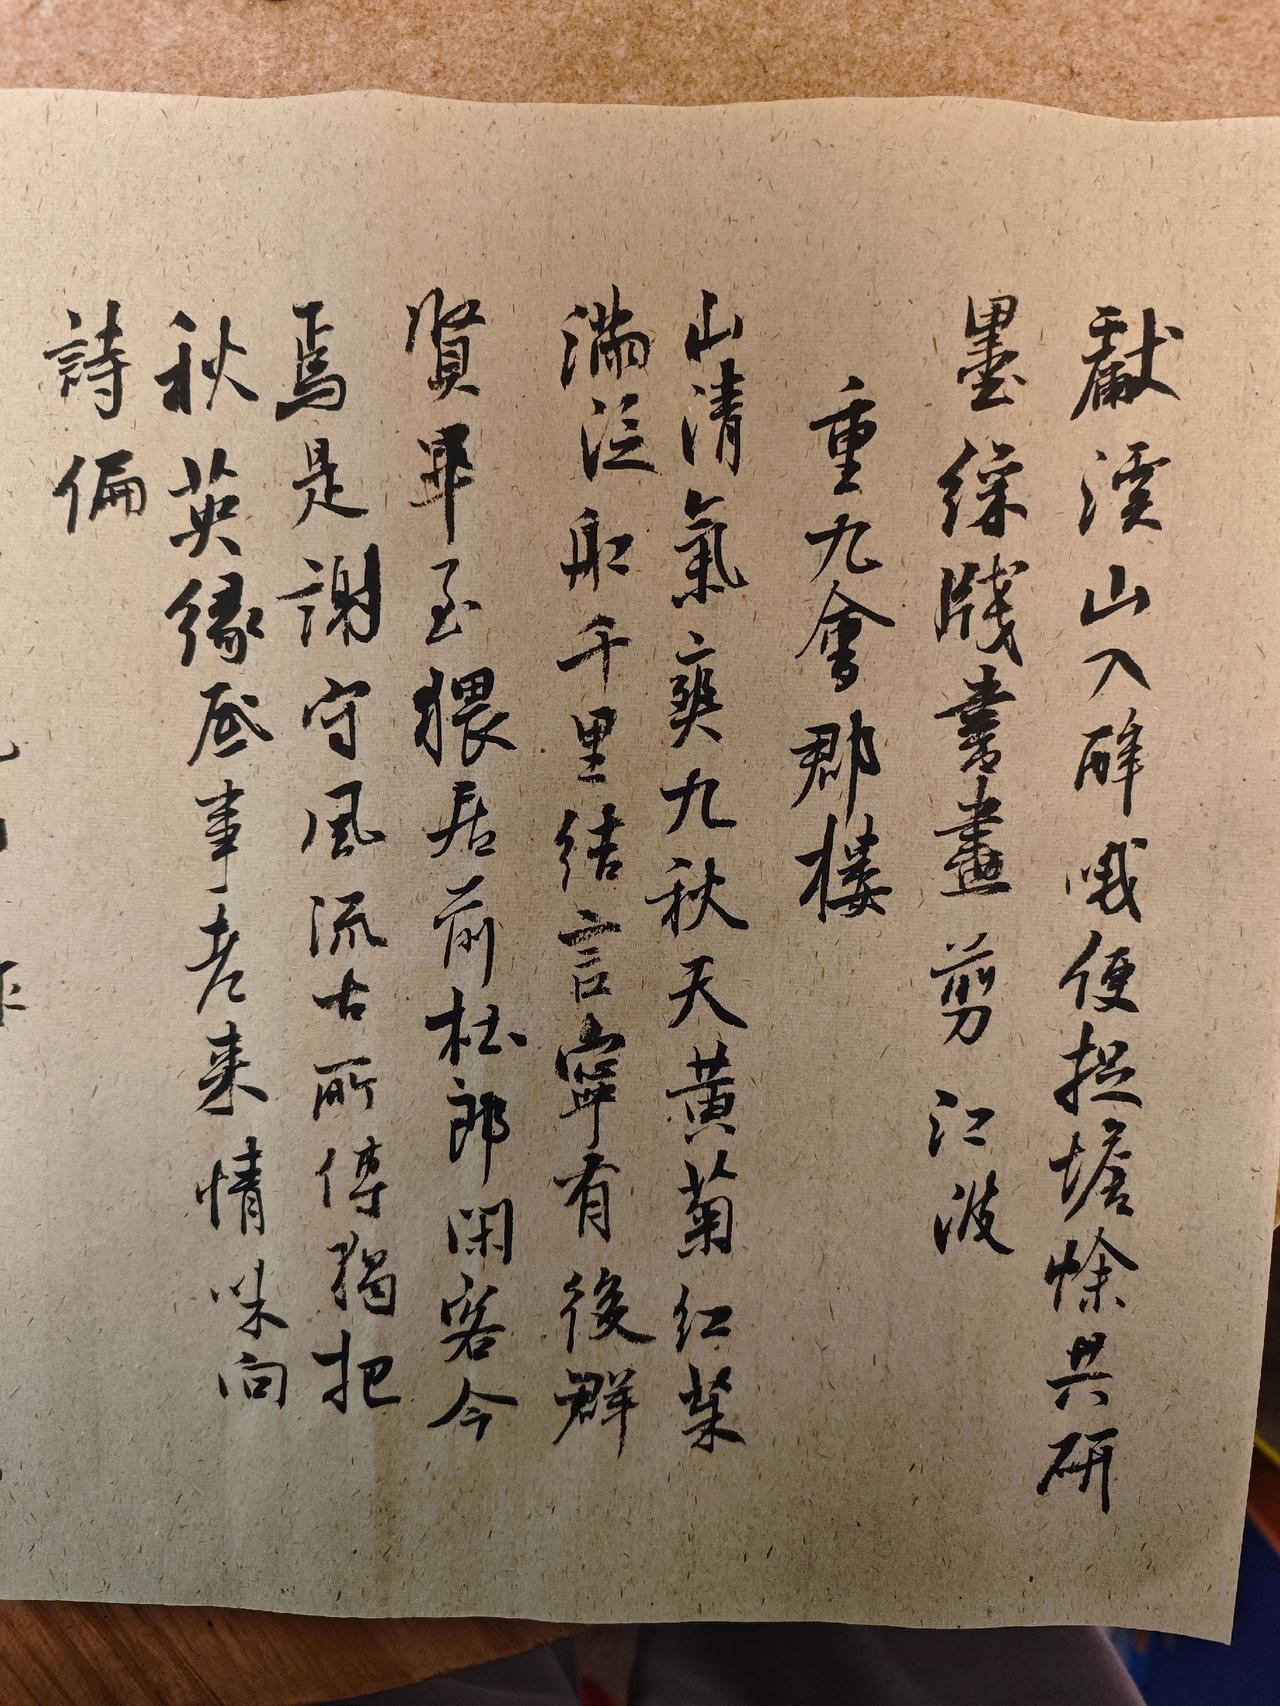 獻溪山入醉哦便捉蟾蜍共研
墨綵牋書盡剪江波
重九會郡樓
山清氣爽九秋天黃菊紅茱
滿泛船千里結言寧有後群
賢畢至猥居前杜郎閑客今
焉是謝守風流古所傳獨把
秋英緣底事老來情味向
詩偏